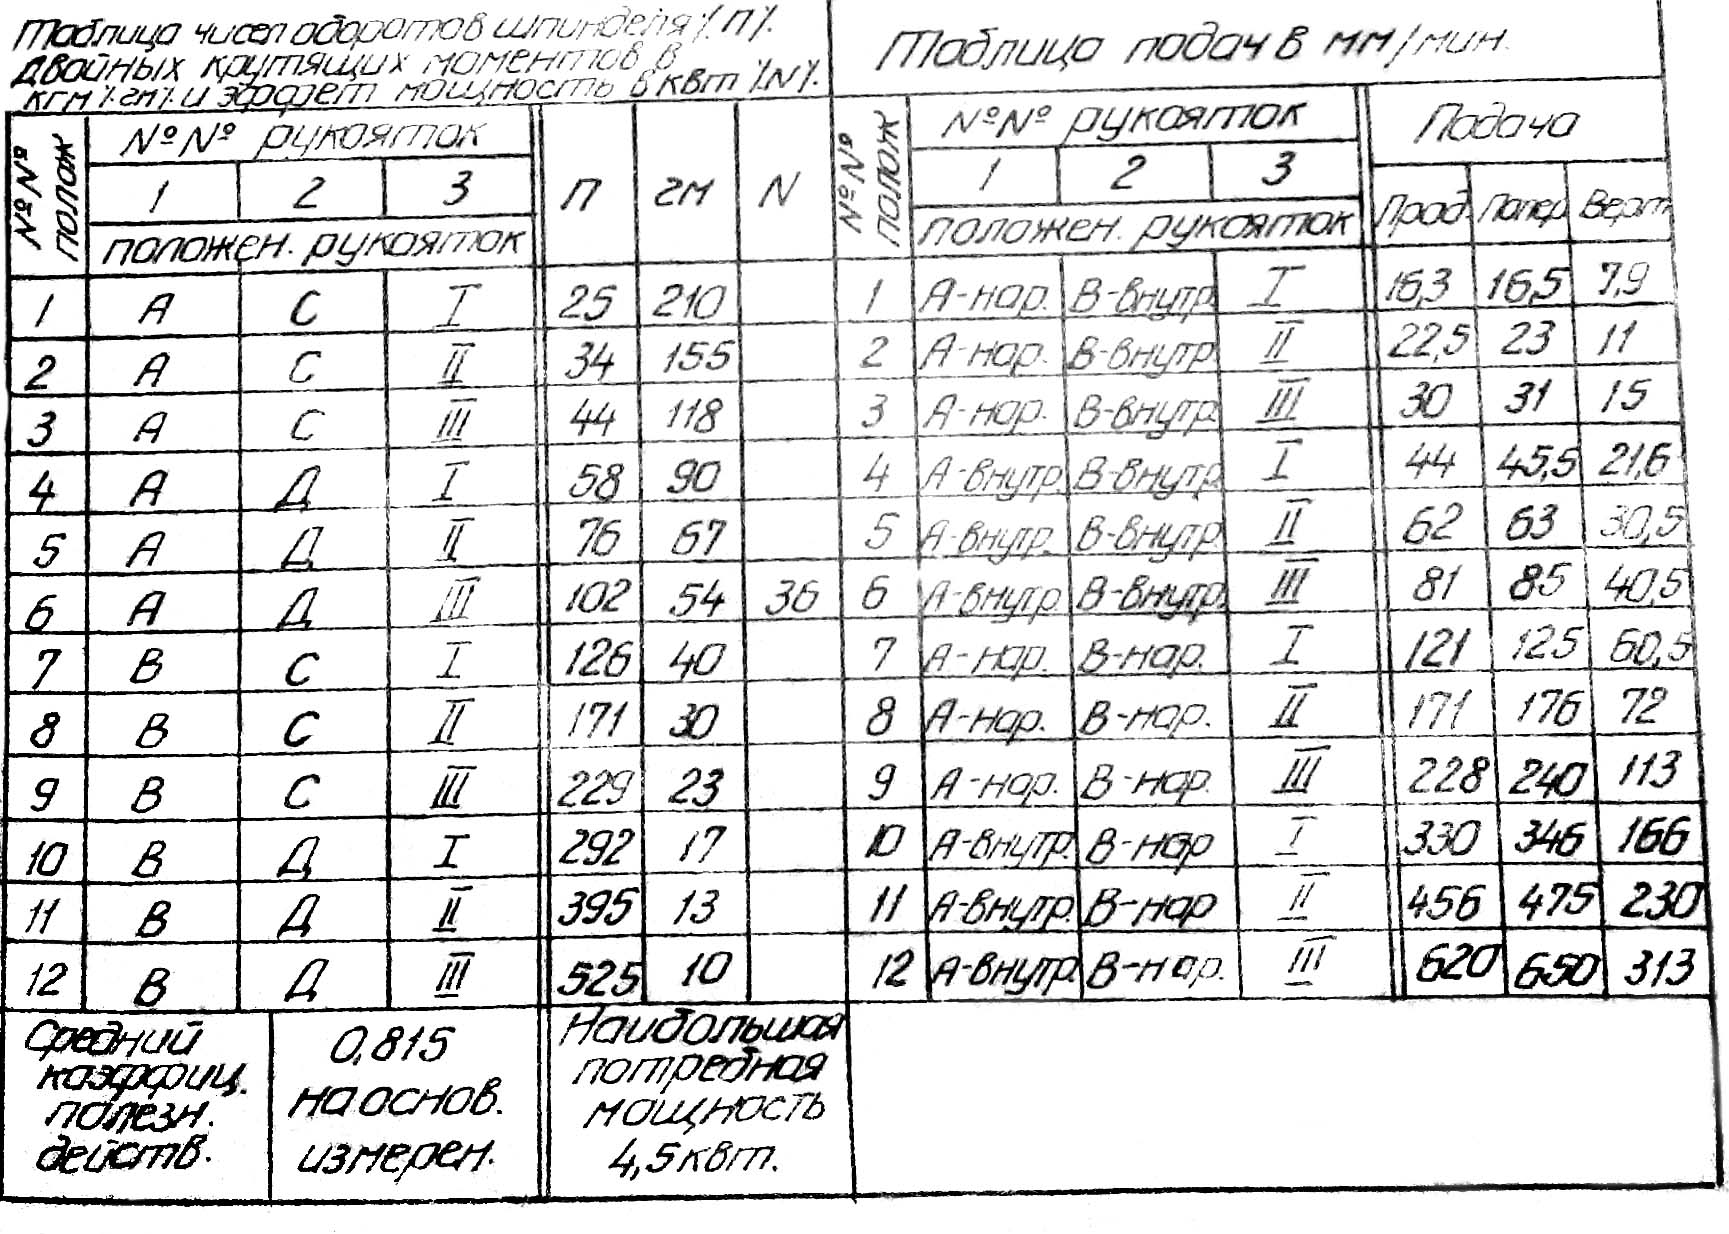 Таблица чисел оборотов шпинделя /.П/.
двойных крутящих моментов в
кгм /.гм/. и эффет мощность в квт /.N/.
№№ полож
№№ рукояток
1 2 3
положен. рукояток
П гм N
1 А С I 25 210
2 А С II 34 155
3 А С III 44 118
4 А Д I 58 90
5 А Д II 76 67
6 А Д III 102 54 36
7 В С I 126 40
8 В С II 171 30
9 В С III 229 23
10 В Д I 292 17
11 В Д II 395 13
12 В Д III 525 10
Средний
коэффиц.
полезн.
действ.
0,815
на основ.
измерен.
Наибольшая
потребная
мощность
4,5 квт.
Таблица подач в мм/мин.
№№ полож
№№ рукояток
1 2 3
положен. рукояток
Подача
Прод. Попер Верт
1 А-нар. В-внутр. I 16,3 16,5 7,9
2 А-нар. В-внутр. II 22,5 23 11
3 А-нар. В-внутр. III 30 31 15
4 А-внутр. В-внутр. I 44 45,5 21,6
5 А-внутр. В-внутр. II 62 63 30,5
6 А-внутр. В-внутр. III 81 85 40,5
7 А-нар. В-нар. I 121 125 60,5
8 А-нар. В-нар. II 171 176 72
9 А-нар. В-нар. III 228 240 113
10 А-внутр. В-нар I 330 346 166
11 А-внутр. В-нар II 456 475 230
12 А-внутр. В-нар. III 620 650 313